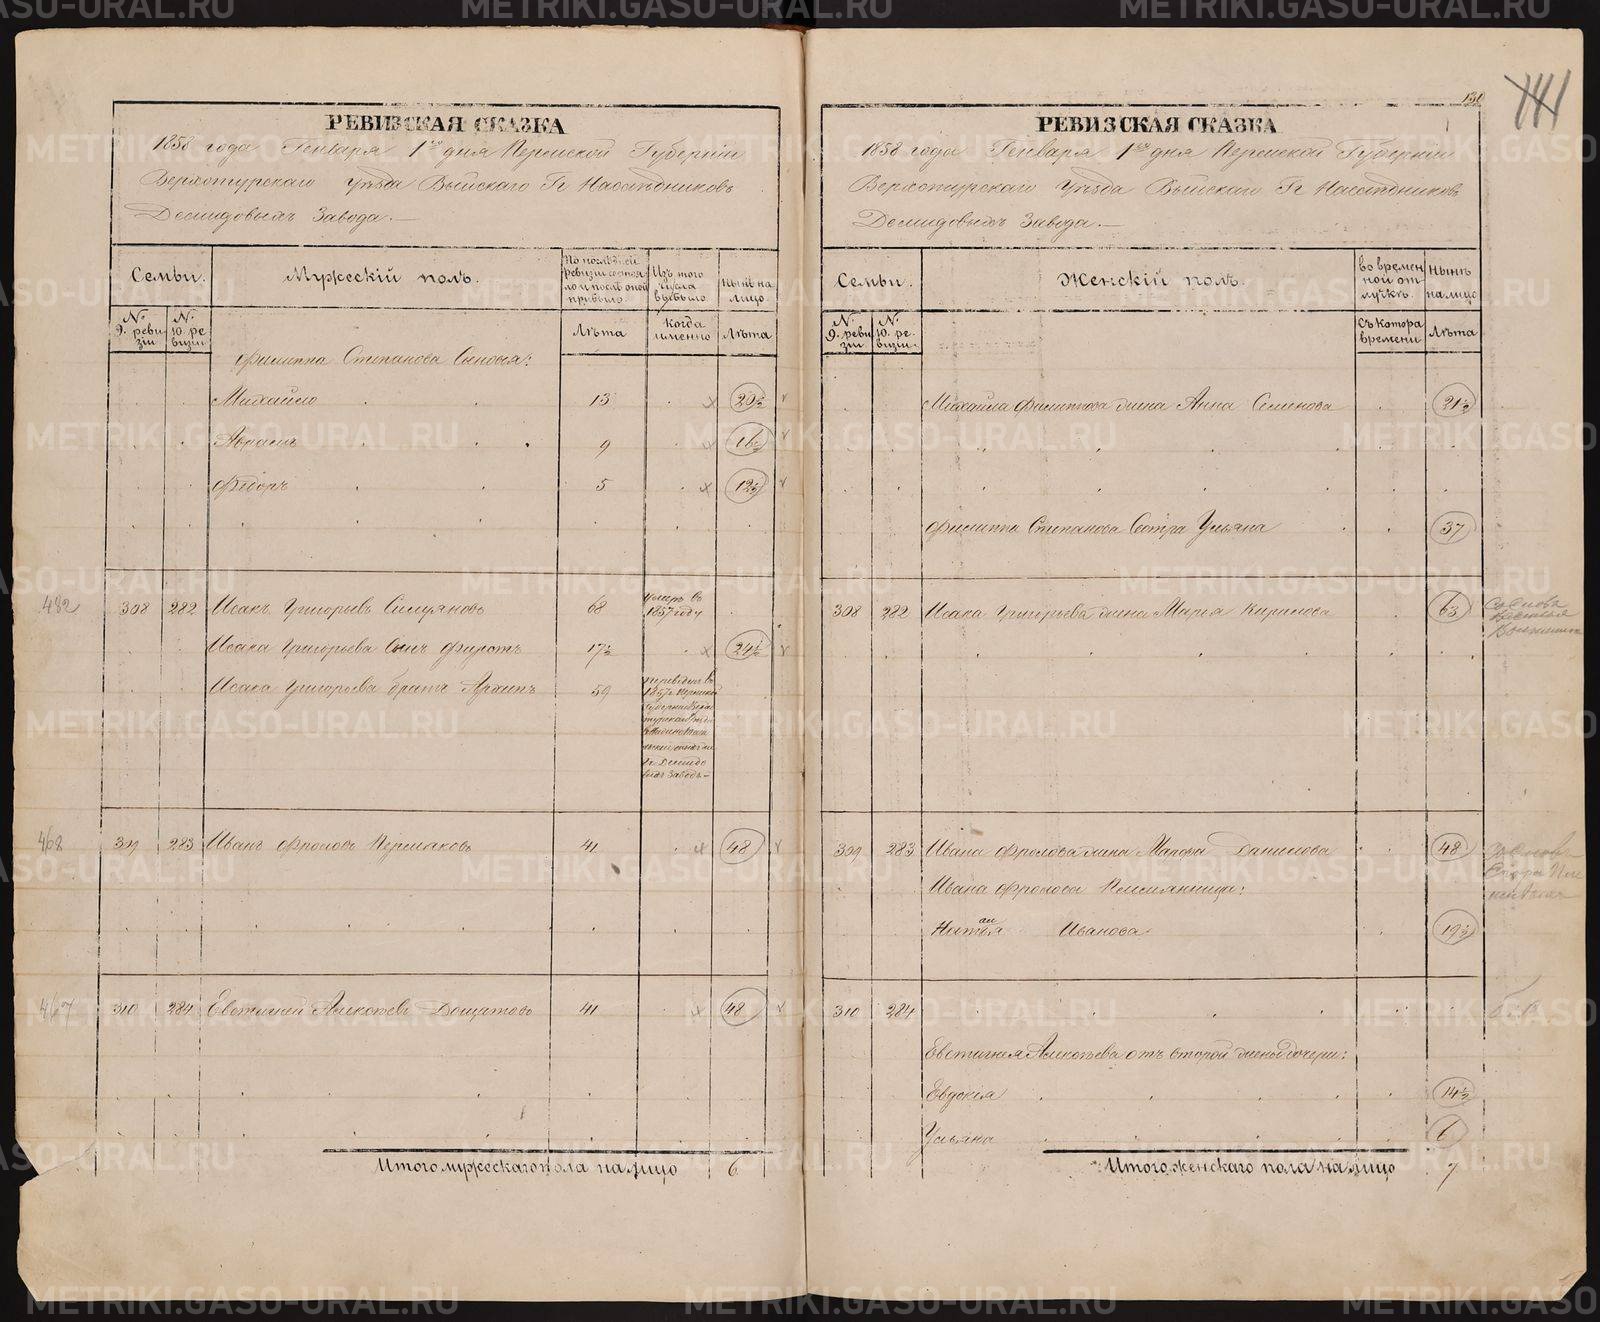 РЕВИЗСКАЯ СКАЗКА
1858 года Генваря 1го дня Пермской Губерніи
Верхотурскаго уѣзда Выйскаго Гг Наслѣдниковъ
Демидовыхъ Завода.—
Семьи.
Мужескій полъ.
По послѣдней ревизіи состояло и послѣ оной прибыло.
Изъ того числа выбыло.
Нынѣ на лицо.
№ 9. ревизіи
№ 10. ревизіи.
Лѣта
Когда именно
Лѣта
Филиппа Степанова Сыновья:
Михайло 13 20½
Абрамъ 9 16½
Федоръ 5 12½
482
308 282 Исакъ Григорьевъ 68 умеръ въ 1857 году
Исака Григорьева Сынъ 17½ 24½
Исака Григорьева братъ Архипъ 59 переведенъ въ
468
309 283 Иванъ Фроловъ Пермяковъ 41 48
467
310 284 Алексѣевъ 41 48
Итого мужескаго пола на лицо 6
131
РЕВИЗСКАЯ СКАЗКА
1858 года Генваря 1го дня Пермской Губерніи
Верхотурскаго Уѣзда Выйскаго Гг Наслѣдниковъ
Демидовыхъ Завода.—
Семьи.
Женскій полъ.
Во временной отлучкѣ.
Нынѣ на лицо.
№ 9. ревизіи
№ 10. ревизіи.
Съ котора времени
Лѣта
Михайла Филиппова жена Анна Семенова 21½
Филиппа Степанова Сестра Ульяна 37
308 282 Исака Григорьева жена Марья Кирилова 63
309 283 Ивана Фролова жена Марфа Данилова 48
Ивана Фролова Племянница:
Наталья Иванова 19½
310 284
Евстигнея Алексѣева отъ второй жены дочери:
Евдокія 14½
Ульяна 6
Итого женскаго пола на лицо 7
METRIKI.GASO-URAL.RU